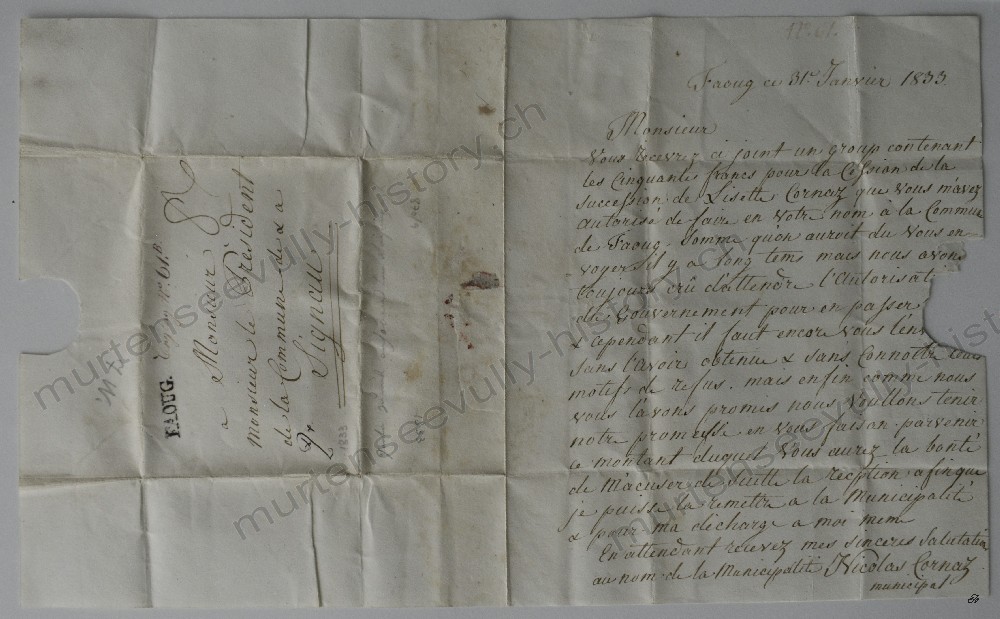 N.° 61.
Faoug ce 31e Janvier 1833
Monsieur
Vous recevrez ci joint un group contenant
les Cinquante francs pour la Cession de la
succession de Lisette Cornaz que vous m'avez
autorisé de faire en votre nom à la Commune
de Faoug. Somme qu'on auroit du vous en
voyer il y a long tems mais nous avons
toujours crû d'attendre l'Autorisat
du Gouvernement pour en passer
Cependant il faut encore vous l'env
sans l'avoir obtenue & sans Connoître leurs
motifs de refus. mais enfin comme nous
vous l'avons promis nous voullons tenir
notre promesse en vous faison parvenir
ce montant duquel vous aurez la bonté
de M'acuser de suitte la Reception afin que
je puisse la remettre a la Municipalité
& pour ma décharge a moi meme
En attendant recevez mes sinceres salutation
au nom de la Municipalité Nicolas Cornaz
municipal
N.° 61.
FAOUG.
a
Monsieur
monsieur le Président
de la Commune de & a
Signau
1833
murtenseevully-history.ch
murtenseevully-history.ch
murtenseevully-history.ch
murtenseevully-history.ch